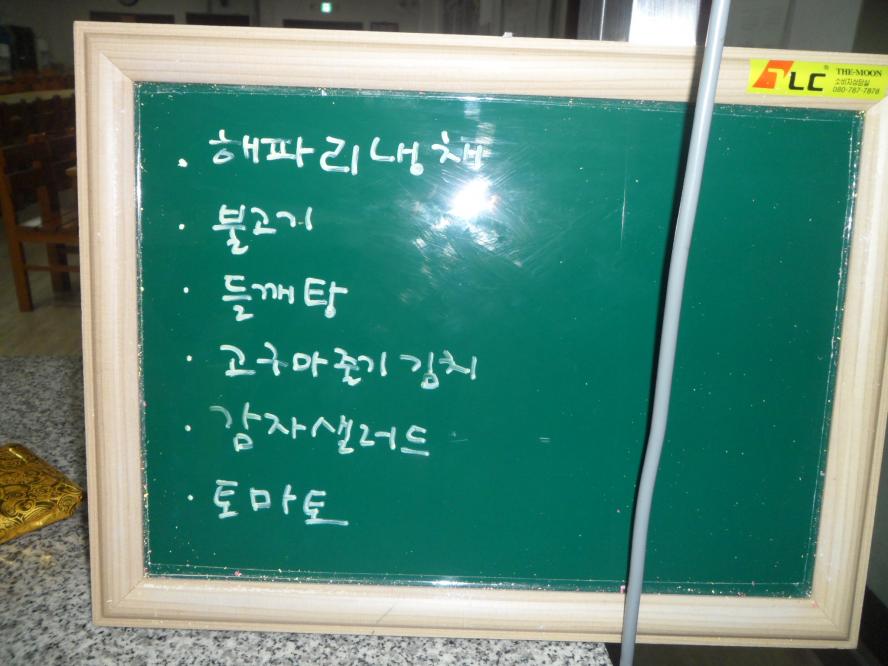 TLC THE-MOON
소비자상담실
080-787-7878
· 해파리냉채
· 불고기
· 들깨탕
· 고구마줄기김치
· 감자샐러드
· 토마토